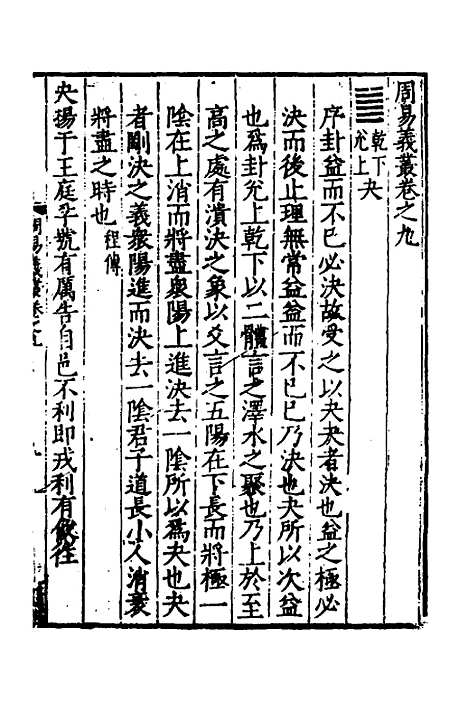 周易義叢卷之九
䷪乾下兌上夬
序卦益而不已必決故受之以夬夬者決也益之極必
決而後止理無常益益而不已已乃決也夬所以次益
也爲卦兌上乾下以二體言之澤水之聚也乃上於至
高之處有潰決之象以爻言之五陽在下長而將極一
陰在上消而將盡衆陽上進決去一陰所以爲夬也夬
者剛決之義衆陽進而決去一陰君子道長小人消衰
將盡之時也程傳
夬揚于王庭孚號有厲告自邑不利即戎利有攸往
周易義叢卷之九